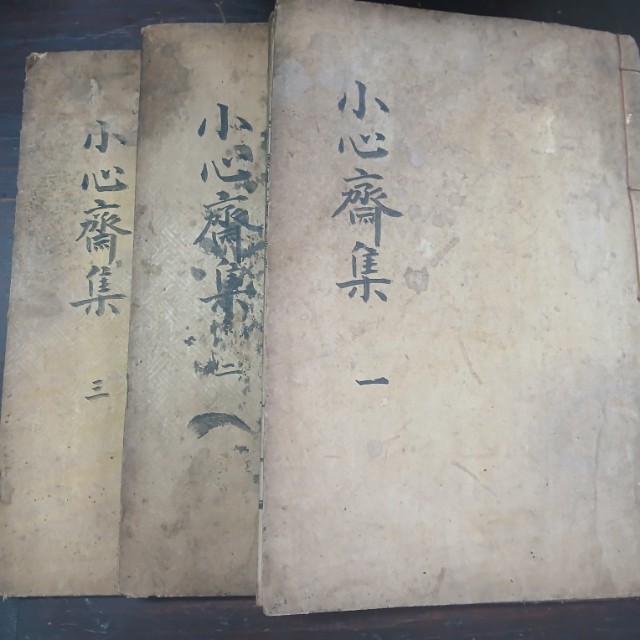 小心齋集
一
小心齋集
二
小心齋集
三